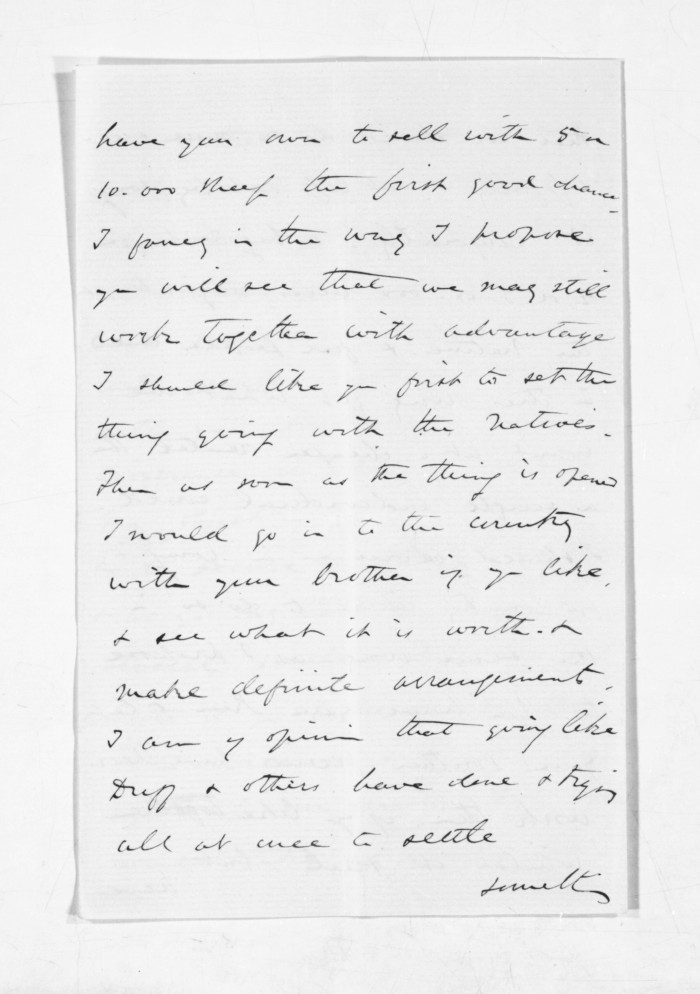 have your own to sell with 5 or
10.000 sheep the first good chance
I fancy in the way I propose
yu will see that we may still
work together with advantage
I should like yu first to set the
thing going with the Natives.
Then as soon as the thing is opened
I would go in to the country
with your brother if yu like,
& see what it is worth. &
make definite arrangements.
I am of opinion that going like
Duff & others have done & trying
all at once to settle
something